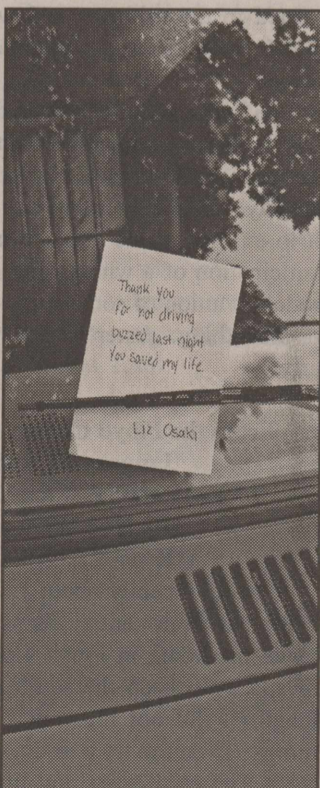 Thank you
for not driving
buzzed last night
You saved my life
Liz Osaki